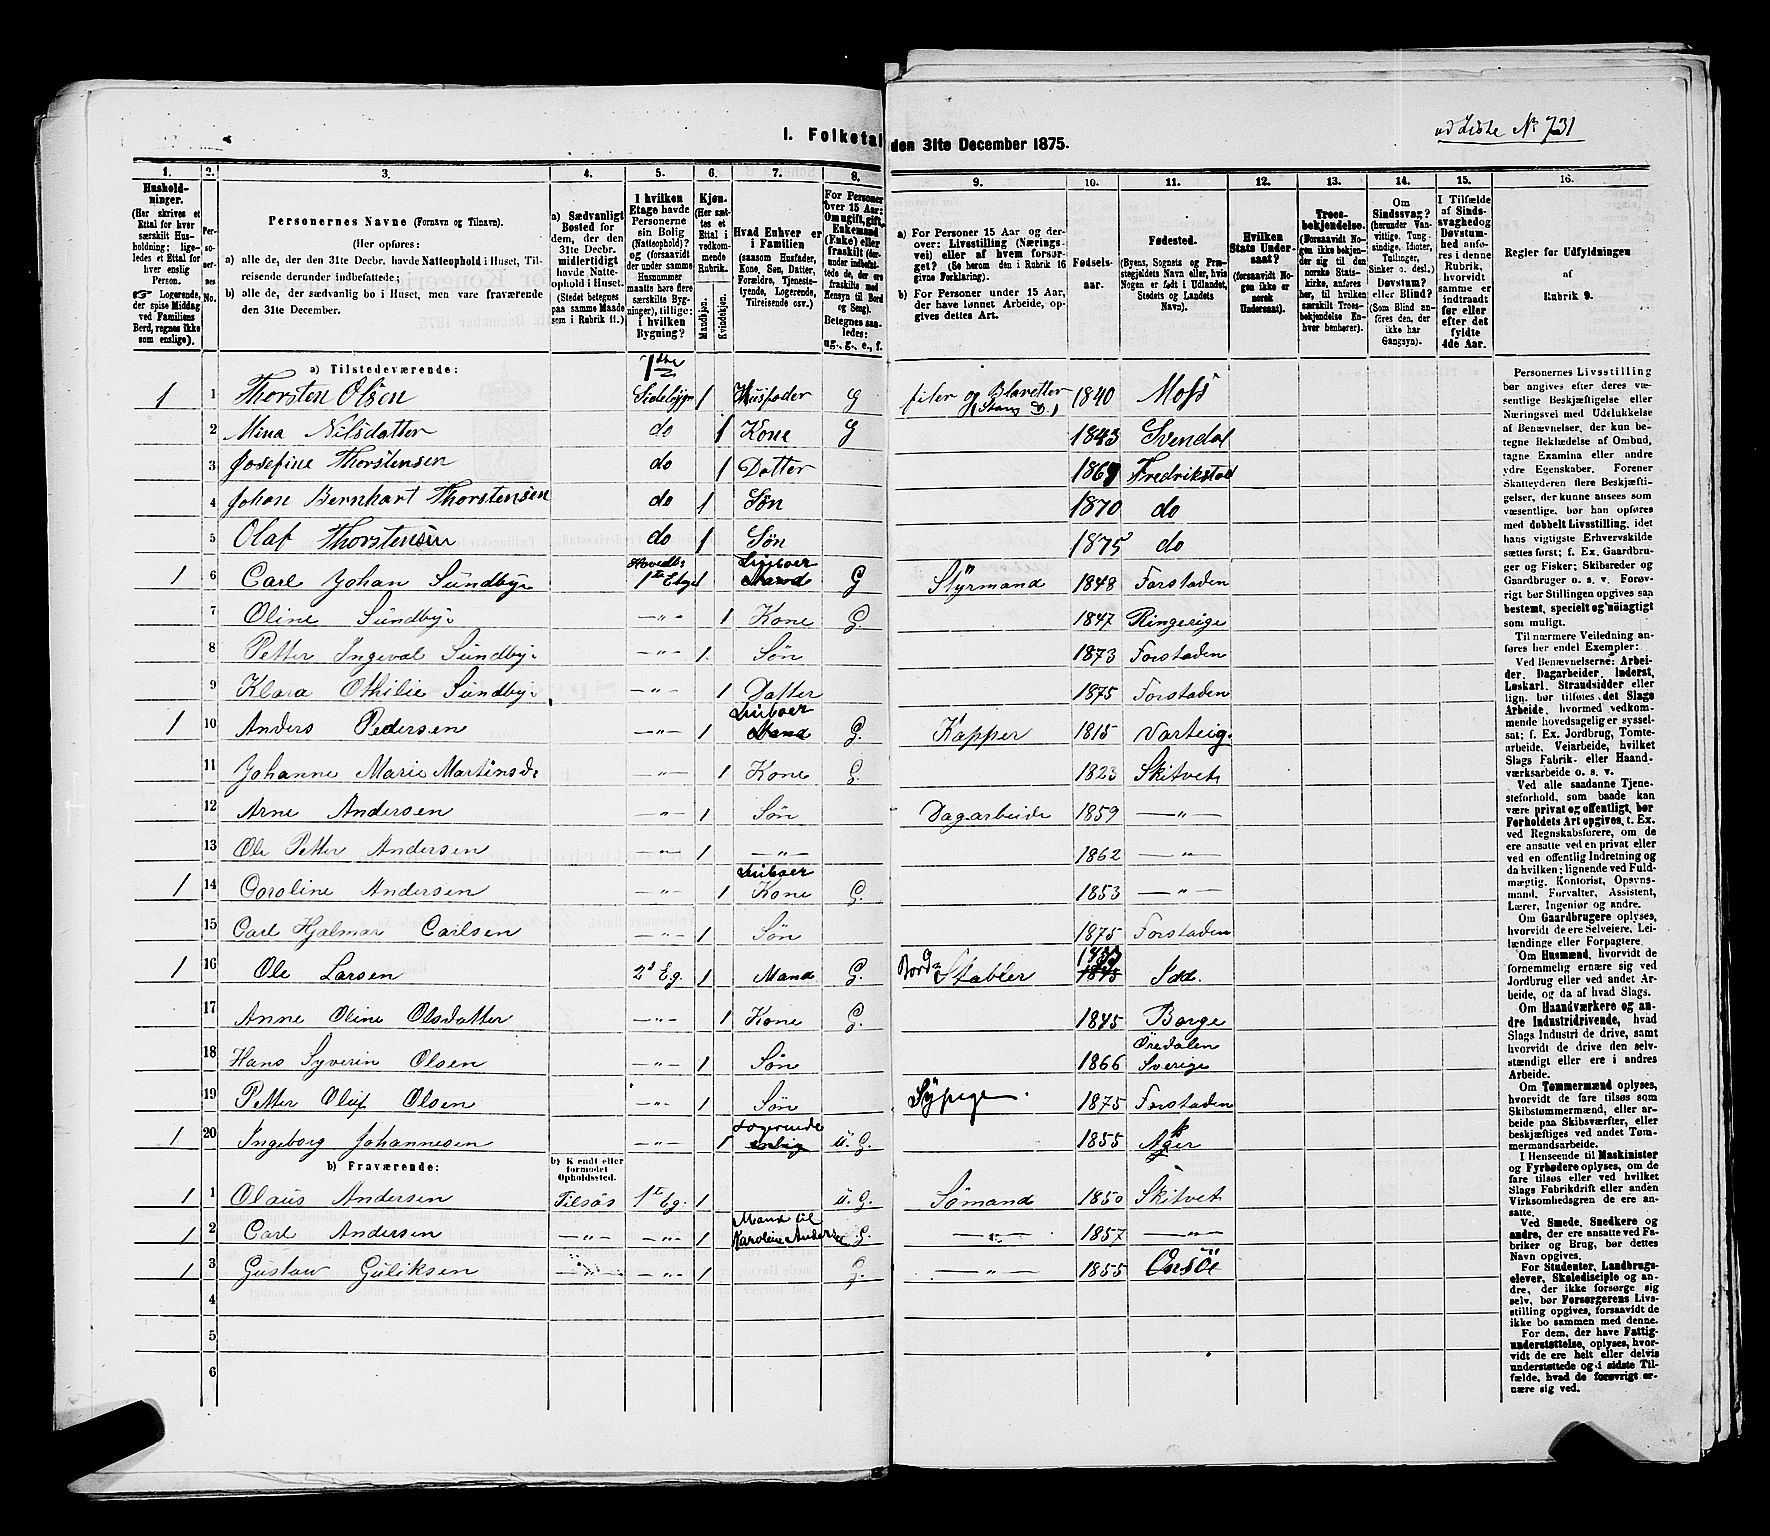 I. Folketal den 31te December 1875.
ad Liste No 731
1. 2. 3. 4. 5. 6. 7. 8. 9. 10. 11. 12. 13. 14. 15. 16.
Husholdninger. (Her skrives et Ettal for hver særskilt Husholdning; ligeledes et Ettal for hver enslig Person. ☞ Logerende, der spise Middag ved Familiens Bord, regnes ikke som enslige).
Personernes No.
Personernes Navne (Fornavn og Tilnavn).
(Her opføres:
a) alle de, der den 31te Decbr. havde Natteophold i Huset, Tilreisende derunder indbefattede;
b) alle de, der sædvanlig bo i Huset, men vare fraværende den 31te December.
a) Sædvanligt Bosted for dem, der den 31te Decbr. midlertidigt havde Natteophold i Huset. (Stedet betegnes paa samme Maade som i Rubrik 11.)
I hvilken Etage havde Personerne sin Bolig (Natteophold)? og (forsaavidt der under samme Husnummer maatte høre flere særskilte Bygninger), tillige: i hvilken Bygning?
Kjøn. (Her sættes et Ettal i vedkommende Rubrik. Mandkjøn. Kvindekjøn.
Hvad Enhver er i Familien (saasom Husfader, Kone, Søn, Datter, Forældre, Tjenestetyende, Logerende, Tilreisende osv.).
For Personer over 15 Aar: Om ugift, gift, Enkemand (Enke) eller fraskilt (derunder indbefattede de, der ere fraskilte med Hensyn til Bord og Seng). Betegnes saaledes: ug., g., e., f.
a) For Personer 15 Aar og derover: Livsstilling (Næringsvei) eller af hvem forsørget? (Se herom den i Rubrik 16 givne Forklaring).
b) For Personer under 15 Aar, der have lønnet Arbeide, opgives dettes Art.
Fødselsaar.
Fødested. (Byens, Sognets og Præstegjeldets Navn eller, hvis Nogen er født i Udlandet, Stedets og Landets Navn).
Hvilken Stats Undersaat? (forsaavidt Nogen ikke er norsk Undersaat).
Troesbekjendelse. (Forsaavidt Nogen ikke bekjender sig til den norske Statskirke, anføres her, til hvilken særskilt Troesbekjendelse Enhver benhører).
Om Sindssvag? (herunder Vanvittige, Tungsindige, Idioter, Tullinger, Sinker o. desl.) Døvstum? eller Blind? (Som Blind anføres den, der ikke har Gangsyn).
I Tilfælde af Sindssvaghed og Døvstumhed anføres i denne Rubrik, hvorvidt samme er indtraadt før eller efter det fyldte 4de Aar.
Regler før Udfyldningen af Rubrik 9.
a) Tilstedeværende:
1 1 Thorsten Olsen Sidebygn 1 Husfader G filer og Blaretter 1840 Moss
2 Mina Nilsdatter do 1 Kone G 1843 Svendal
3 Josefine Thorstensen do 1 Datter Fredrikstad
4 Johan Bernhart Thorstensen do 1 Søn 1870 do
5 Olaf Thorstensen do 1 Søn 1875 do
1 6 Carl Johan Sundbye 1te Etage Mand G Styrmand 1848 Forstaden
7 Oline Sundbye —"— 1 Kone G. 1847 Ringerige
8 Petter Ingeval Sundbye —"— 1 Søn 1873 Forstaden
9 Klara Othilie Sundbye —"— 1 Datter 1875 Forstaden
1 10 Anders Pedersen —"— 1 Mand G. Kapper 1815 Varteig
11 Johanne Marie Martinsd. —"— 1 Kone G. 1823 Skitvet
12 Arne Andersen —"— 1 Søn Dagarbeide 1859 —"—
13 Ole Petter Andersen —"— 1 —"— 1862 —"—
1 14 Caroline Andersen —"— 1 Kone G. 1853 —"—
15 Carl Hjalmar Carlsen —"— 1 Søn 1875 Forstaden
1 16 Ole Larsen 2d Eg. 1 Mand G. Bord Stabler 1845 Idd
17 Anne Oline Olsdatter —"— 1 Kone G. 1845 Borge
18 Hans Syverin Olsen —"— 1 Søn 1866 Øredalen Sverige
19 Petter Oluf Olsen —"— 1 Søn 1875 Forstaden
1 20 Ingeborg Johannesen —"— 1 Logerende enlig u. G. Sypige 1855 Aker
b) Fraværende:
b) Kjendt eller formodet Opholdssted.
1 1 Olaus Andersen Tilsøs 1te Eg. 1 u. G. Sømand 1850 Skitvet
1 2 Carl Andersen —"— —"— 1 Mand til Karoline Andersen G. —"— 1857 —"—
1 3 Gustav Guliksen —"— —"— 1 G. —"— 1855 Onsöe
4
5
6
Personernes Livsstilling bør angives efter deres væsentlige Beskjæftigelse eller Næringsvei med Udelukkelse af Benævnelser, der kun betegne Beklædelse af Ombud, tagne Examina eller andre ydre Egenskaber. Forener Skatteyderen flere Beskjæftigelser, der kunne ansees som væsentlige, bør han opføres med dobbelt Livsstilling, idet hans vigtigste Erhvervskilde sættes først; f. Ex. Gaardbruger og Fisker; Skibsreder og Gaardbruger o. s. v. Forøvrigt bør Stillingen opgives saa bestemt, specielt og nøiagtigt som muligt.
Til nærmere Veiledning anføres her endel Exempler:
Ved Benævnelserne: Arbeider, Dagarbeider, Inderst, Løskarl, Strandsidder eller lign. bør tilføies det Slags Arbeide, hvormed vedkommende hovedsagelig er sysselsat; f. Ex. Jordbrug, Tomtearbeide, Veiarbeide, hvilket Slags Fabrik- eller Haandværksarbeide o. s. v.
Ved alle saadanne Tjenesteforhold, som baade kan være privat og offentligt, bør Forholdets Art opgives, t. Ex. ved Regnskabsførere, om de ere ansatte ved en privat eller ved en offentlig Indretning og da hvilken; lignende ved Fuldmægtig, Kontorist, Opsynsmand, Forvalter, Assistent, Lærer, Ingeniør og andre.
Om Gaardbrugere oplyses, hvorvidt de ere Selveiere, Leilændinge eller Forpagtere.
Om Husmænd, hvorvidt de fornemmelig ernære sig ved Jordbrug eller ved andet Arbeide, og da af hvad Slags.
Om Haandværkere og andre Industridrivende, hvad Slags Industri de drive, samt hvorvidt de drive den selvstændigt eller ere i andres Arbeide.
Om Tømmermænd oplyses, hvorvidt de fare tilsøs som Skibstømmermænd, eller arbeide paa Skibsværfter, eller beskjæftiges ved andet Tømmermandsarbeide.
I Henseende til Maskinister og Fyrbødere oplyses, om de fare tilsøs eller ved hvilket Slags Fabrikdrift eller anden Virksomhedsgren de ere ansatte.
Ved Smede, Snedkere og andre, der ere ansatte ved Fabriker og Brug, bør dettes Navn opgives.
For Studenter, Landbrugselever, Skoledisciple og andre, der ikke forsørge sig selv, bør Forsørgerens Livsstilling opgives, forsaavidt de ikke bo sammen med denne.
For dem, der have Fattigunderstøttelse, oplyses, hvorvidt de ere helt eller delvis understøttede og i sidste Tilfælde, hvad de forøvrigt ernære sig ved.